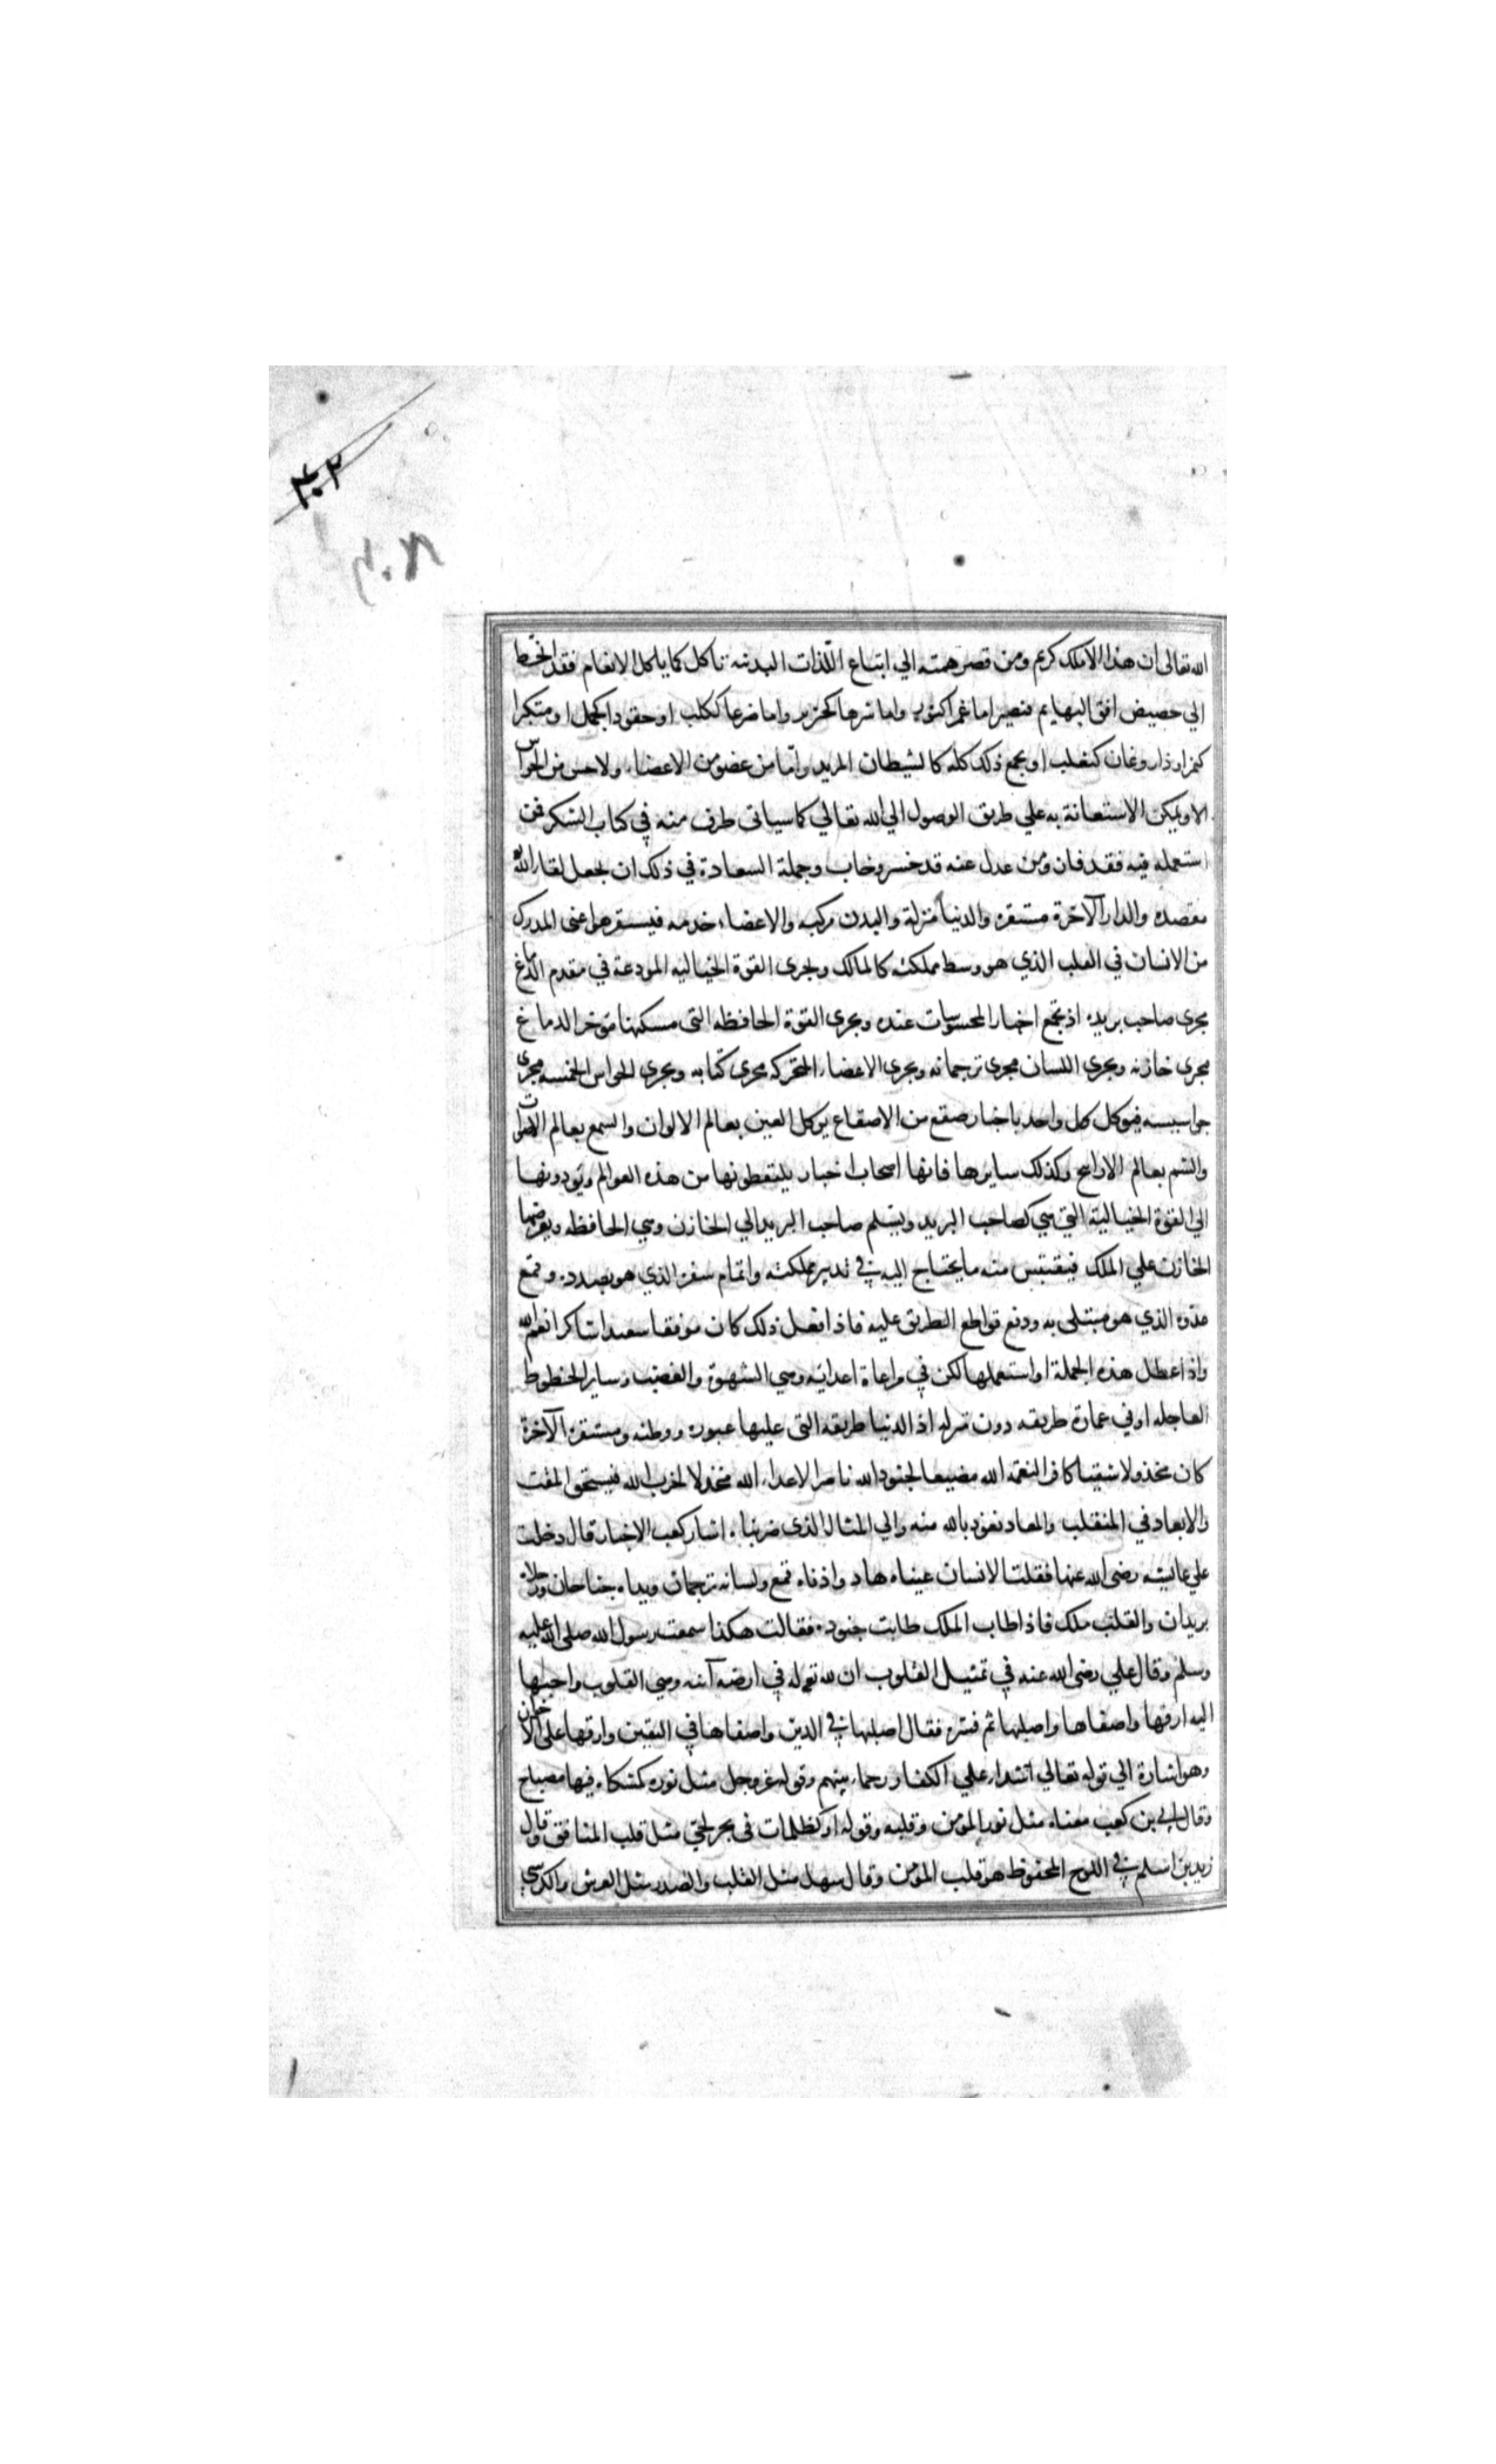 ٣٠٢
٣٠٨
الله تعالى ان هذا الاملك كريم ومن قصر همته الي اتباع اللذات البدنيه تاكل كما ياكل الانعام فقد انحط
الي حضيض افق البهايم فيصير اما غمرا كثور واما شرها كخنزير واما ضرعا ككلب او حقودا كجمل او متكبرا
كنمر او ذا روغان كثعلب او يجمع ذلك كله كالشيطان المريد وما من عضو من الاعضاء ولا حس من الحواس
الا ويمكن الاستعانة به علي طريق الوصول الي الله تعالي كما سياتي طرف منه في كتاب الشكر فمن
استعمله فيه فقد فاز ومن عدل عنه قد خسر وخاب وجملة السعادة في ذلك ان يجعل لقاء الله
مقصده والدار الآخرة مستقره والدنيا منزله والبدن مركبه والاعضاء خدمه فيستقر هو اعني المدرك
من الانسان في القلب الذي هو وسط مملكته كالمالك ويجري القوة الخياليه المودعة في مقدم الدماغ
مجري صاحب بريده اذ تجتمع اخبار المحسوسات عنده ويجري القوة الحافظه التي مسكنها موخر الدماغ
مجري خازنه ويجري اللسان مجري ترجمانه ويجري الاعضاء المتحركه مجري كتابه ويجري الحواس الخمسه مجري
جواسيسه فيوكل كل واحد باخبار صقع من الاصقاع يوكل العين بعالم الالوان والسمع بعالم الاصوات
والشم بعالم الاراىح وكذلك سايرها فانها اصحاب اخبار يلتقطونها من هذه العوالم ويودونها
الي القوة الخيالية التي هي كصاحب البريد ويسلم صاحب البريد الي الخازن وهي الحافظه ويعرضها
الخازن علي الملك فيقتبس منه ما يحتاج اليه في تدبير مملكته واتمام سفره الذي هو بصدده وقمع
عدوه الذي هو مبتلي به ودفع قواطع الطريق عليه فاذا فعل ذلك كان موفقا سعيدا شاكرا نعم الله
واذا عطل هذه الجملة او استعملها لكن في مراعاة اعدائه وهي الشهوة والغضب وساير الحظوظ
العاجله او في عمارة طريقه دون منزله اذ الدنيا طريقه التي عليها عبوره ووطنه ومستقره الآخرة
كان مخذولا شقيا كافرا لنعمة الله مضيعا لجنود الله ناصرا لاعداء الله مخذلا لحزب الله فيستحق المقت
والابعاد في المنقلب والمعاد نعوذ بالله منه والي المثال الذي ضربناه اشار كعب الاحبار قال دخلت
علي عايشه رضي الله عنها فقلت الانسان عيناه هاد واذناه قمع ولسانه ترجمان ويداه جناحان ورجلاه
بريدان والقلب ملك فاذا طاب الملك طابت جنوده فقالت هكذا سمعت رسول الله صلي الله عليه
وسلم وقال علي رضي الله عنه في تمثيل القلوب ان لله تع له في ارضه آنيه وهي القلوب واحبها
اليه ارقها واصفاها واصلبها ثم فسره فقال اصلبها في الدين واصفاها في اليقين وارقها علي الاخوان
وهو اشارة الي قوله تعالي اشداء علي الكفار رحماء بينهم وقوله عز وجل مثل نوره كمشكاه فيها مصباح
وقال ابي بن كعب معناه مثل نور المؤمن وقلبه وقوله او كظلمات في بحر لجي مثل قلب المنافق وقال
زيد بن اسلم في اللوح المحفوظ هو قلب المؤمن وقال سهل مثل القلب والصدر مثل العرش والكرسي